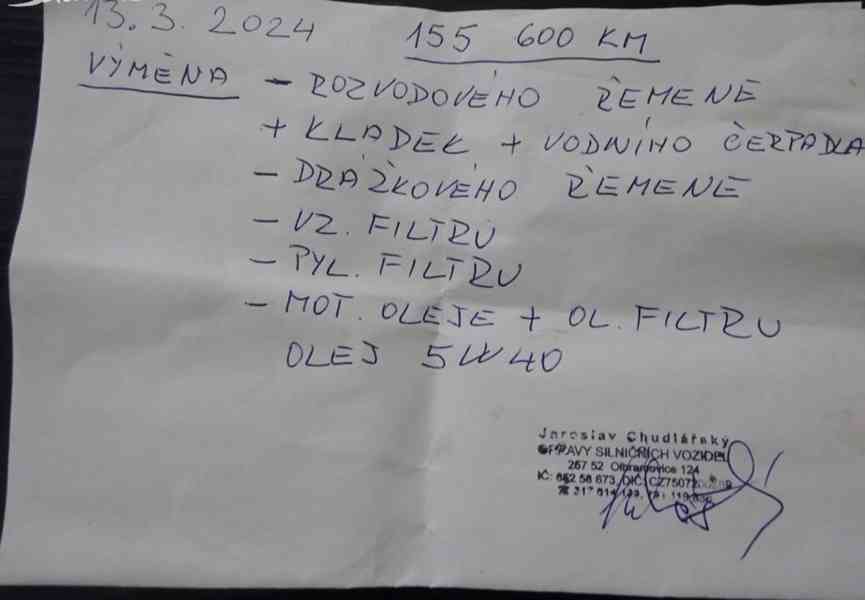 13. 3. 2024 155 600 KM
VÝMĚNA - ROZVODOVÉHO ŘEMENE
+ KLADEK + VODNÍHO ČERPADLA
- DRÁŽKOVÉHO ŘEMENE
- VZ. FILTRU
- PYL. FILTRU
- MOT. OLEJE + OL. FILTRU
OLEJ 5W40
Jaroslav Chudlářský
OPRAVY SILNIČNÍCH VOZIDEL
267 52 Olbramovice 124